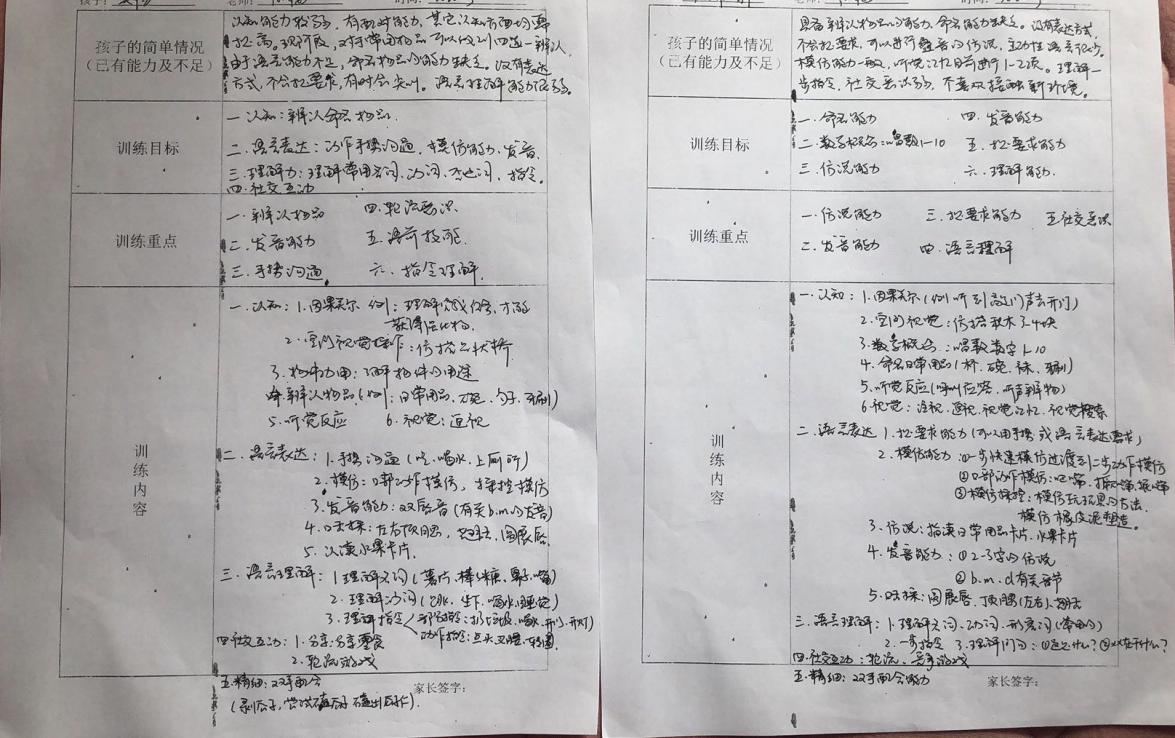 孩子的简单情况
(已有能力及不足)
认知能力较弱，有配对能力，其它认知方面均需
提高。现阶段，对于常用物品可以做到四选一辨认。
由于语言能力不足，命名物品的能力缺乏。没有表达
方式，不会提要求，有时会尖叫。语言理解能力很弱。
训练目标
一.认知：辨认命名物品.
二.语言表达：动作手势沟通，模仿能力、发音.
三.理解力：理解常用名词、动词、 指令。
四.社交互动
训练重点
一.辨认物品 四.轮流意识
二.发音能力 五.语前技能.
三.手势沟通. 六.指令理解.
训练内容
一.认知：1.因果关系 例：理解 任务，才能
获得强化物.
2.空间视觉操作：仿搭三块桥
3.物件功用：了解物件的用途
4.辨认物品(例：日常用品、碗、勺子、牙刷)
5.听觉反应 6.视觉：追视
二.语言表达：1.手势沟通(吃、喝水、上厕所)
2.模仿：口部动作模仿，操控模仿
3.发音能力：双唇音(有关b.m的发音)
4.口肌操：左右顶腮， 圆展唇.
5.认读水果卡片.
三.语言理解：1.理解名词(薯片、棒棒糖、鼻子、嘴)
2.理解动词( 坐下、喝水、睡觉)
3.理解指令 扔垃圾、喝水、开门、开灯)
动作指令：点头、 转圈
四.社交互动：1.分享：分享零食
2.轮流游戏
五.精细：双手配合
(剥瓜子，尝试 瓜子 瓜仁).
家长签字：
孩子的简单情况
(已有能力及不足)
具备辨认物品的能力，命名能力缺乏。没有表达方式，
不会提要求，可以进行叠音的仿说，主动性语言很少。
模仿能力一般，听觉记忆目前处于1-2项。理解一
步指令，社交意识弱，不喜欢接触新环境。
训练目标
一.命名能力 四.发音能力
二.数字概念：唱数1-10 五.提要求能力
三.仿说能力 六.理解能力.
训练重点
一.仿说能力 三.提要求能力 五.社交意识
二.发音能力 四.语言理解
训练内容
一.认知：1.因果关系(例听到敲门声去开门)
2.空间视觉：仿搭积木3-4块
3.数字概念：唱数数字1-10
4.命名日常用品(杯、碗、袜、牙刷)
5.听觉反应(呼叫应答、听声辨物)
6.视觉：注视、追视、视觉记忆、视觉搜索
二.语言表达 1.提要求能力(可以用手势或语言表达要求)
2.模仿能力 ①一步快速模仿过渡到二步动作模仿
②口部动作模仿：
③模仿操控：模仿玩玩具的方法.
模仿橡皮泥塑造。
3.仿说：指读日常用品卡片、水果卡片
4.发音能力：①2-3字的仿说
②b.m.d有关音节
5.口肌操：圆展唇、顶腮(左右)、
三.语言理解：1.理解名词、动词、形容词(常用的)
2.一步指令 3.理解问句：①这是什么？②xx在干什么？
四.社交互动：轮流、 游戏
五.精细：双手配合能力
家长签字：